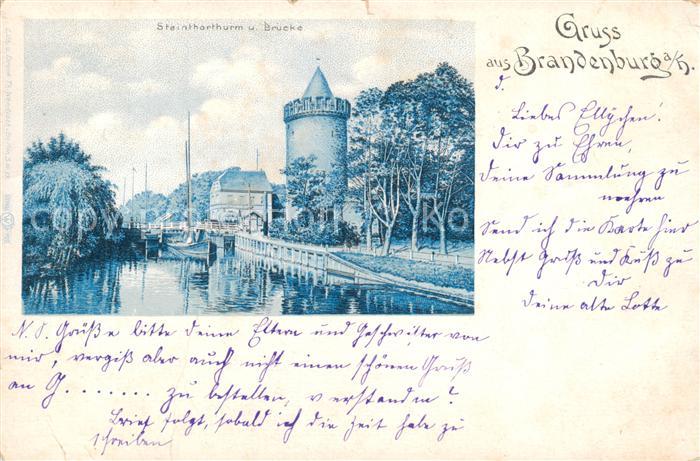 Steinthorthurm u. Brücke
Gruss
aus Brandenburg a/H.
d.
Liebes Ellychen!
Dir zu Ehren,
Deine Sammlung zu
mehren
Send ich die Karte hier
Nebst Gruß und Kuß zu
Dir
Deine alte Lotte
N. S. Grüße bitte deine Eltern und Geschwister von
mir, vergiß aber auch nicht einen schönen Gruß
an G....... zu bestellen, verstandn?
Brief folgt, sobald ich die Zeit habe zu
schreiben